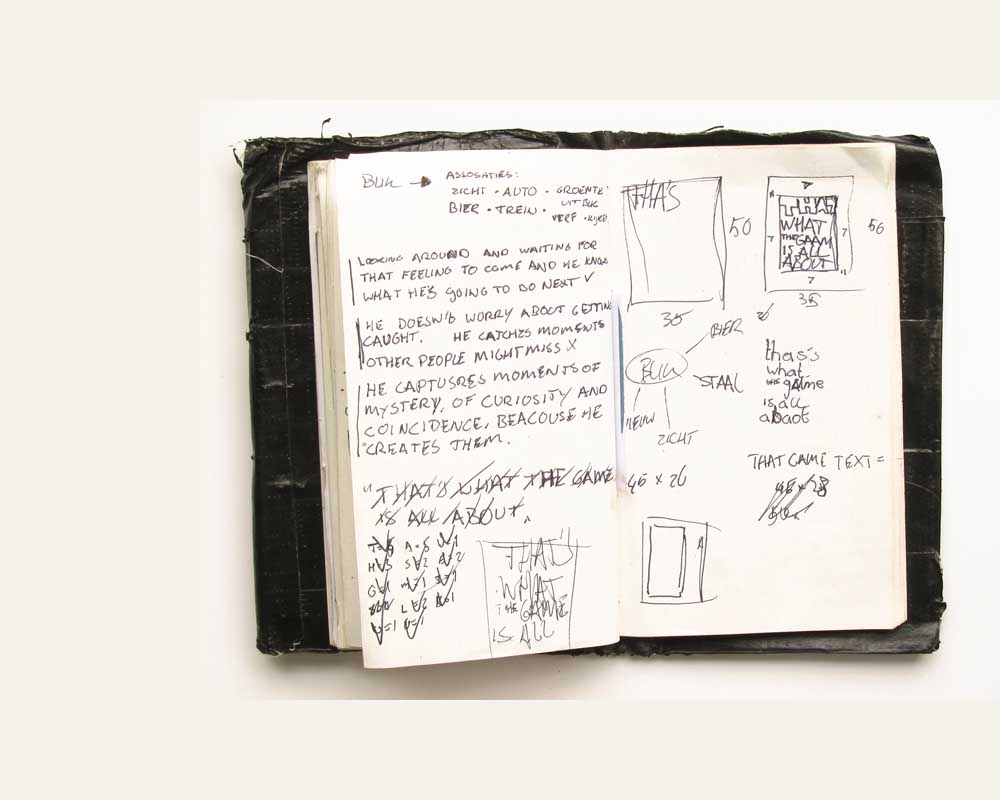 BLIK → ASSOSATIES:
ZICHT · AUTO · GROENTE
UIT BLIK
BIER · TREIN · VERF · KIJKEN
LOOKING AROUND AND WAITING FOR
THAT FEELING TO COME AND HE KNOWS
WHAT HE'S GOING TO DO NEXT
HE DOESN'T WORRY ABOUT GETTING
CAUGHT. HE CATCHES MOMENTS
OTHER PEOPLE MIGHT MISS X
HE CAPTUSRES MOMENTS OF
MYSTERY, OF CURIOSITY AND
COINCIDENCE, BEACOUSE HE
CREATES THEM.
"THAT'S WHAT THE GAME
IS ALL ABOUT"
THAT'S
WHAT
THE GAME
IS ALL
THA'S
50
35
THAT
WHAT
THE GAAM
IS ALL
ABOUT
50
35
BLIK
BIER
STAAL
ZICHT
thas's
what
the game
is all
abaot
46 x 26
THAT GAME TEXT =